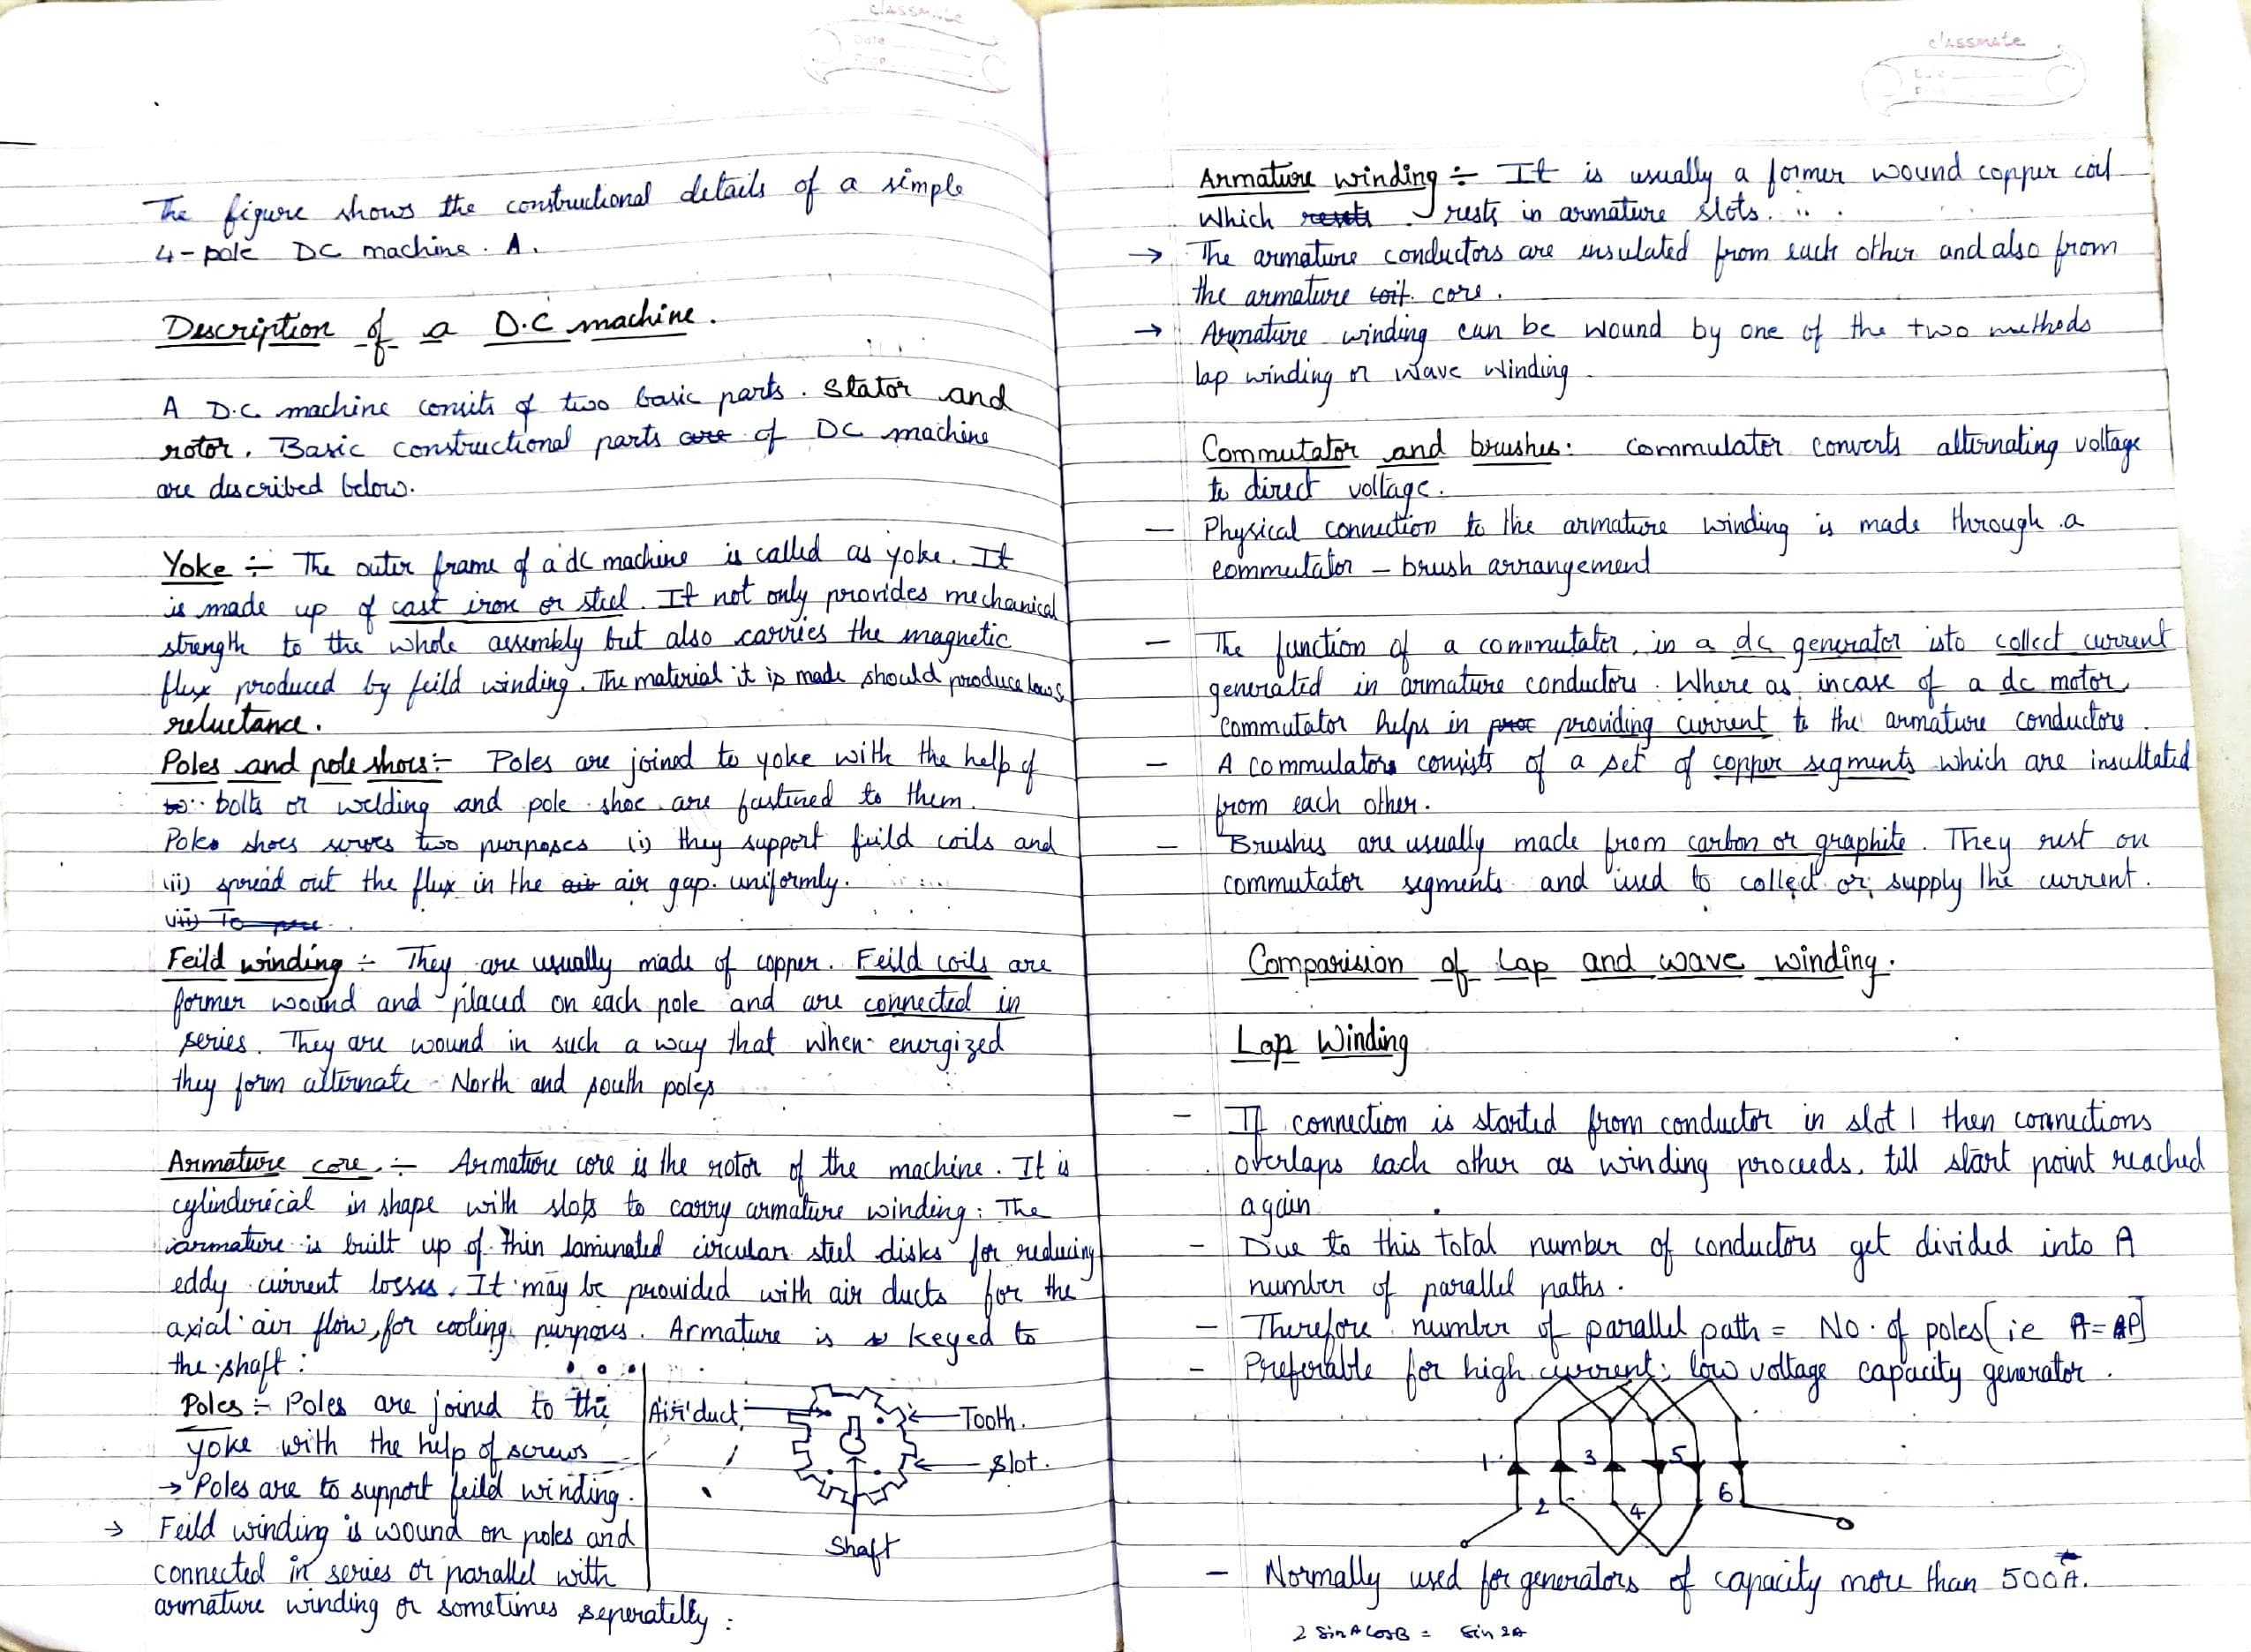 classmate
Date
Page
The figure shows the constructional details of a simple
4-pole DC machine. A.
Description of a D.C machine.
A D.C. machine consits of two basic parts. Stator and
rotor. Basic constructional parts are of DC machine
are described below.
Yoke ÷ The outer frame of a dc machine is called as yoke. It
is made up of cast iron or steel. It not only provides mechanical
strength to the whole assembly but also carries the magnetic
flux produced by feild winding. The material it is made should produce low
reluctance.
Poles and pole shoes:- Poles are joined to yoke with the help of
to bolts or welding and pole shoe are fastined to them.
Poke shoes serves two purposes (i) they support feild coils and
(ii) spread out the flux in the air air gap. uniformly.
(iii) To
Feild winding ÷ They are usually made of copper. Feild coils are
former wound and placed on each pole and are connected in
series. They are wound in such a way that when energized
they form alternate North and south poles
Armature core. ÷ Armature core is the rotor of the machine. It is
cylinderical in shape with slots to carry armature winding: The
armature is built up of thin laminated circular steel disks for reducing
eddy current losses. It may be provided with air ducts for the
axial air flow, for cooling purposes. Armature is keyed to
the shaft:
Poles ÷ Poles are joined to the
yoke with the help of screws
→ Poles are to support feild winding.
→ Feild winding is wound on poles and
connected in series or parallel with
armature winding or sometimes seperatelly:
Air duct
Tooth.
slot.
Shaft
classmate
Armature winding ÷ It is usually a former wound copper coil
Which rests in armature slots.
→ The armature conductors are insulated from each other and also from
the armature coil. core.
→ Armature winding can be wound by one of the two methods
lap winding or Wave Winding
Commutator and brushes: Commulator converts alternating voltage
to direct voltage.
— Physical connection to the armature winding is made through a
commutator – brush arrangement
— The function of a commutator, in a dc generator isto collect current
generated in armature conductors. Where as, incase of a dc motor,
commutator helps in providing current to the armature conductors.
— A Commulators consists of a set of copper segments which are insultated
from each other.
— Brushes are usually made from carbon or graphite. They rest on
commutator segments and used to collect or supply the current.
Comparision of Lap and wave winding.
Lap Winding
— If connection is started from conductor in slot 1 then connections
overlaps each other as winding proceeds, till start point reached
again
— Due to this total number of conductors get divided into A
number of parallel paths.
— Therefore number of parallel path = No. of poles[ie A = P]
— Preferable for high current; low voltage capacity generator.
1 3 5
2 4 6
— Normally used for generators of capacity more than 500A.
2 Sin A Cos B = Sin 2A